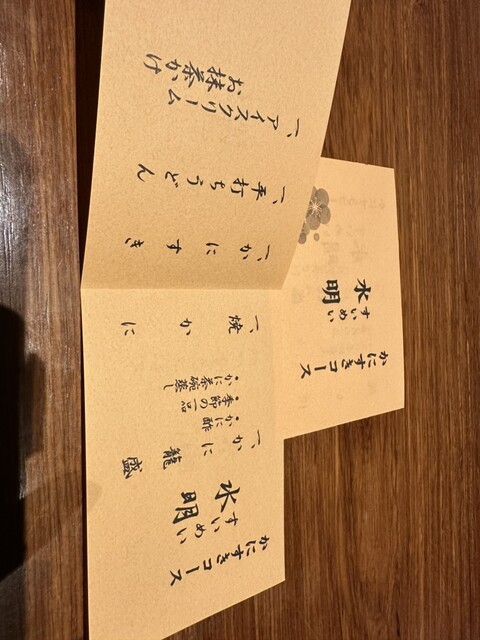 かにすきコース
水明
すいめい
一、かに籠盛
・かに酢
・季節の一品
・かに茶碗蒸し
一、焼かに
一、かにすき
一、平打ちうどん
一、アイスクリーム
お抹茶かけ
かにすきコース
水明
すいめい